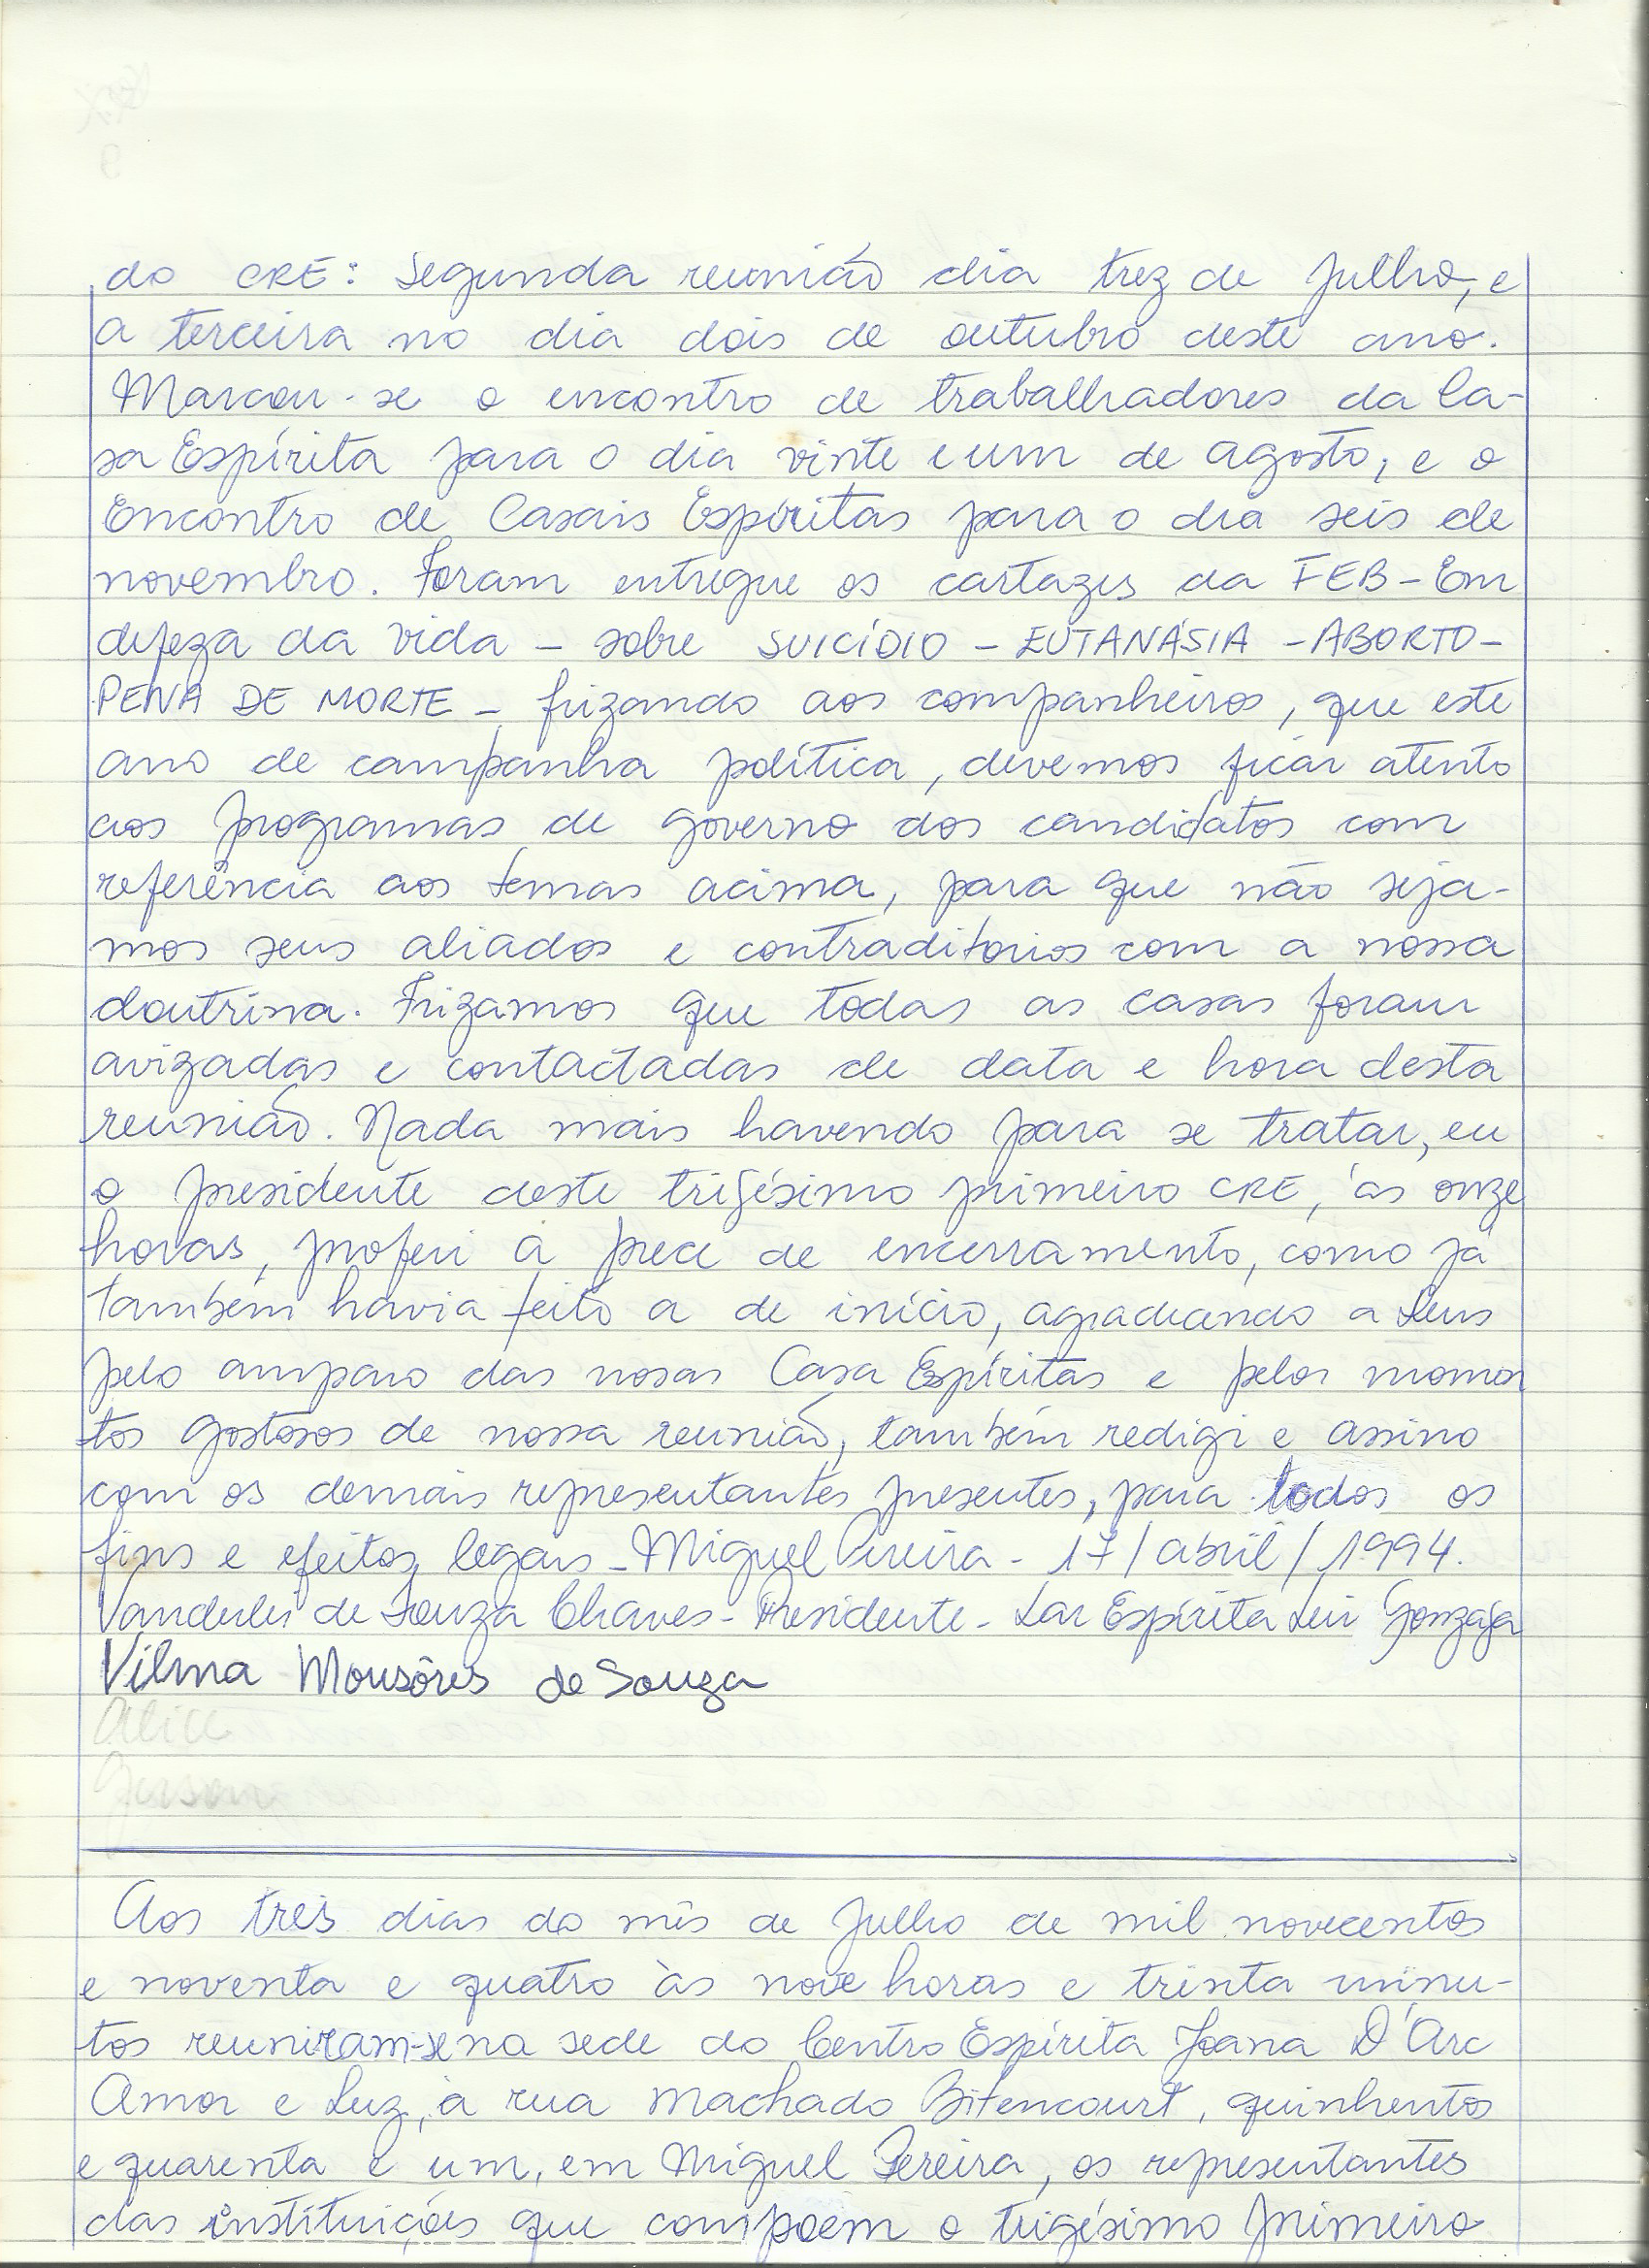 do CRE: Segunda reunião dia trez de Julho, e
a terceira no dia dois de outubro deste ano.
Marcou-se o encontro de trabalhadores da Ca-
sa Espírita para o dia vinte e um de agosto, e o
Encontro de Casais Espíritas para o dia seis de
novembro. Foram entregue os cartazes da FEB - Em
defeza da vida - sobre SUICÍDIO - EUTANÁSIA - ABORTO -
PENA DE MORTE - frizando aos companheiros, que este
ano de campanha política, devemos ficar atento
aos programas de governo dos candidatos com
referência aos temas acima, para que não seja-
mos seus aliados e contraditorios com a nossa
doutrina. Frizamos que todas as casas foram
avizadas e contactadas de data e hora desta
reunião. Nada mais havendo para se tratar, eu
o presidente deste trigésimo primeiro CRE, às onze
horas, proferi a prece de encerramento, como já
também havia feito a de início, agradecendo a Deus
pelo amparo das nosas Casa Espíritas e pelos momen
tos gostosos de nossa reunião, também redigi e assino
com os demais representantes presentes, para todos os
fins e efeitos legais - Miguel Pereira - 17/abril/1994.
Vanderlei de Souza Chaves - Presidente - Lar Espírita Luiz Gonzaga
Vilma Mousôres de Souza
Alice
Gerson
Aos três dias do mês de Julho de mil novecentos
e noventa e quatro às nove horas e trinta minu-
tos reuniram-se na sede do Centro Espírita Joana D'Arc
Amor e Luz, à rua Machado Bitencourt, quinhentos
e quarenta e um, em Miguel Pereira, os representantes
das instituições que compoem o trigésimo primeiro